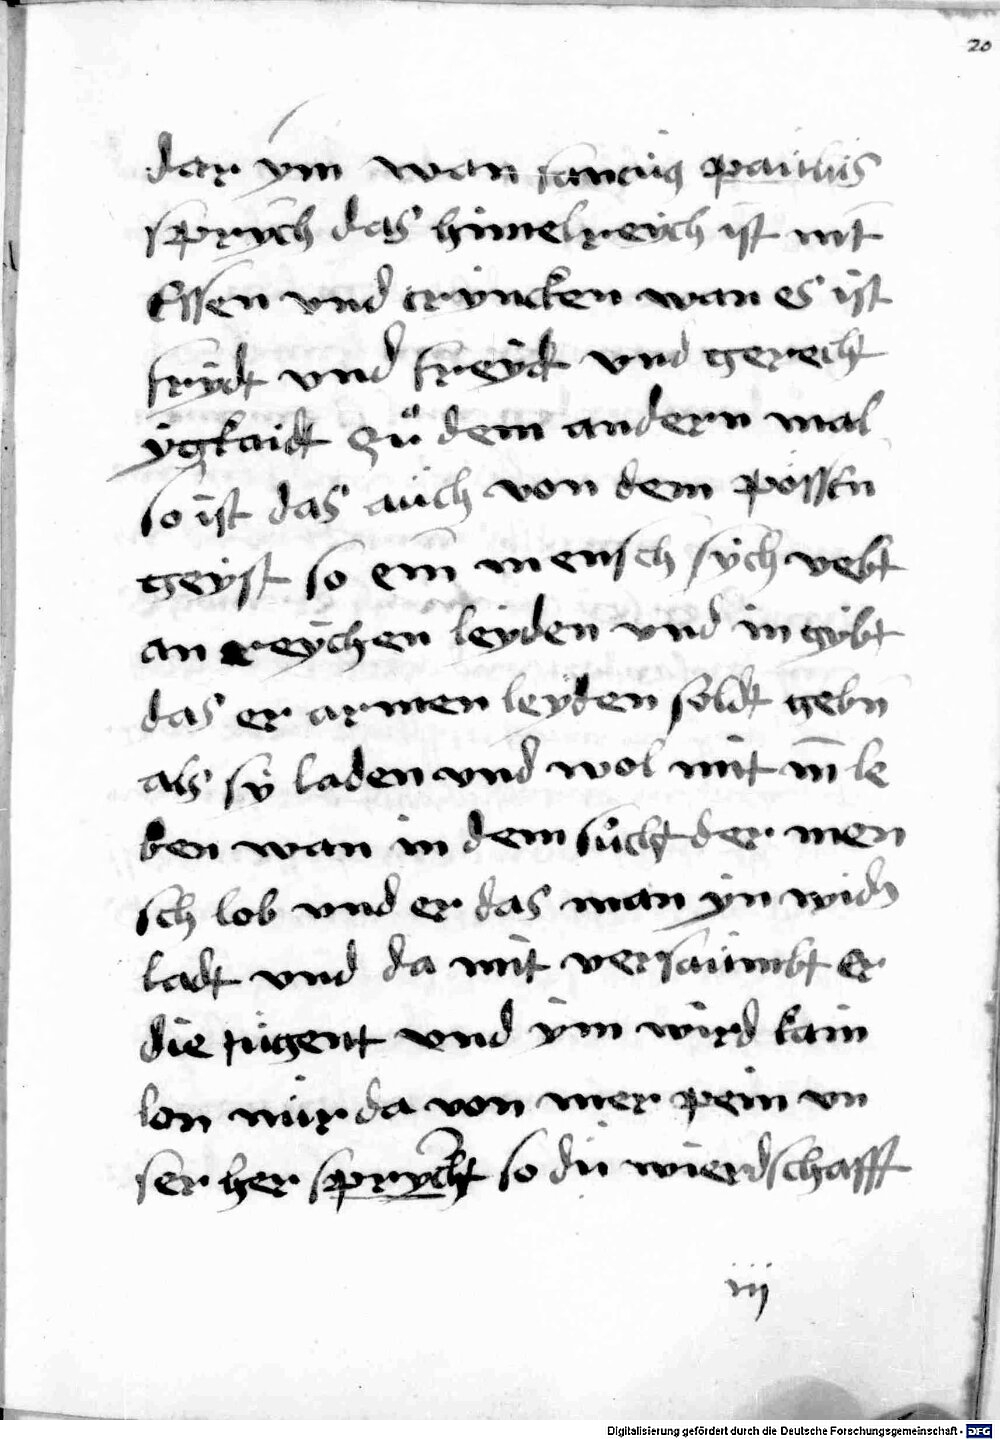 20
dar ym wan sanctus paulus
sprych das himelreych ist nit
Essen vnd tryncken wan es ist
fryd vnd freydt vnd gerecht
ygkaidt zů dem andern mal
so ist das auch von dem pössen
geyst so ein mensch sych vebt
an reychen leyden vnd in gybt
das er armen leyden soldt gebn
als sy laden vnd wol mit in le
ben wan in dem sůcht der men
sch lob vnd er das man yn wider
ladt vnd da mit versaumbt Er
die tugent vnd ym wird kain
lon nur da von mer pein vn
ser her sprycht so du wierdschafft
iij
Digitalisierung gefördert durch die Deutsche Forschungsgemeinschaft - DFG